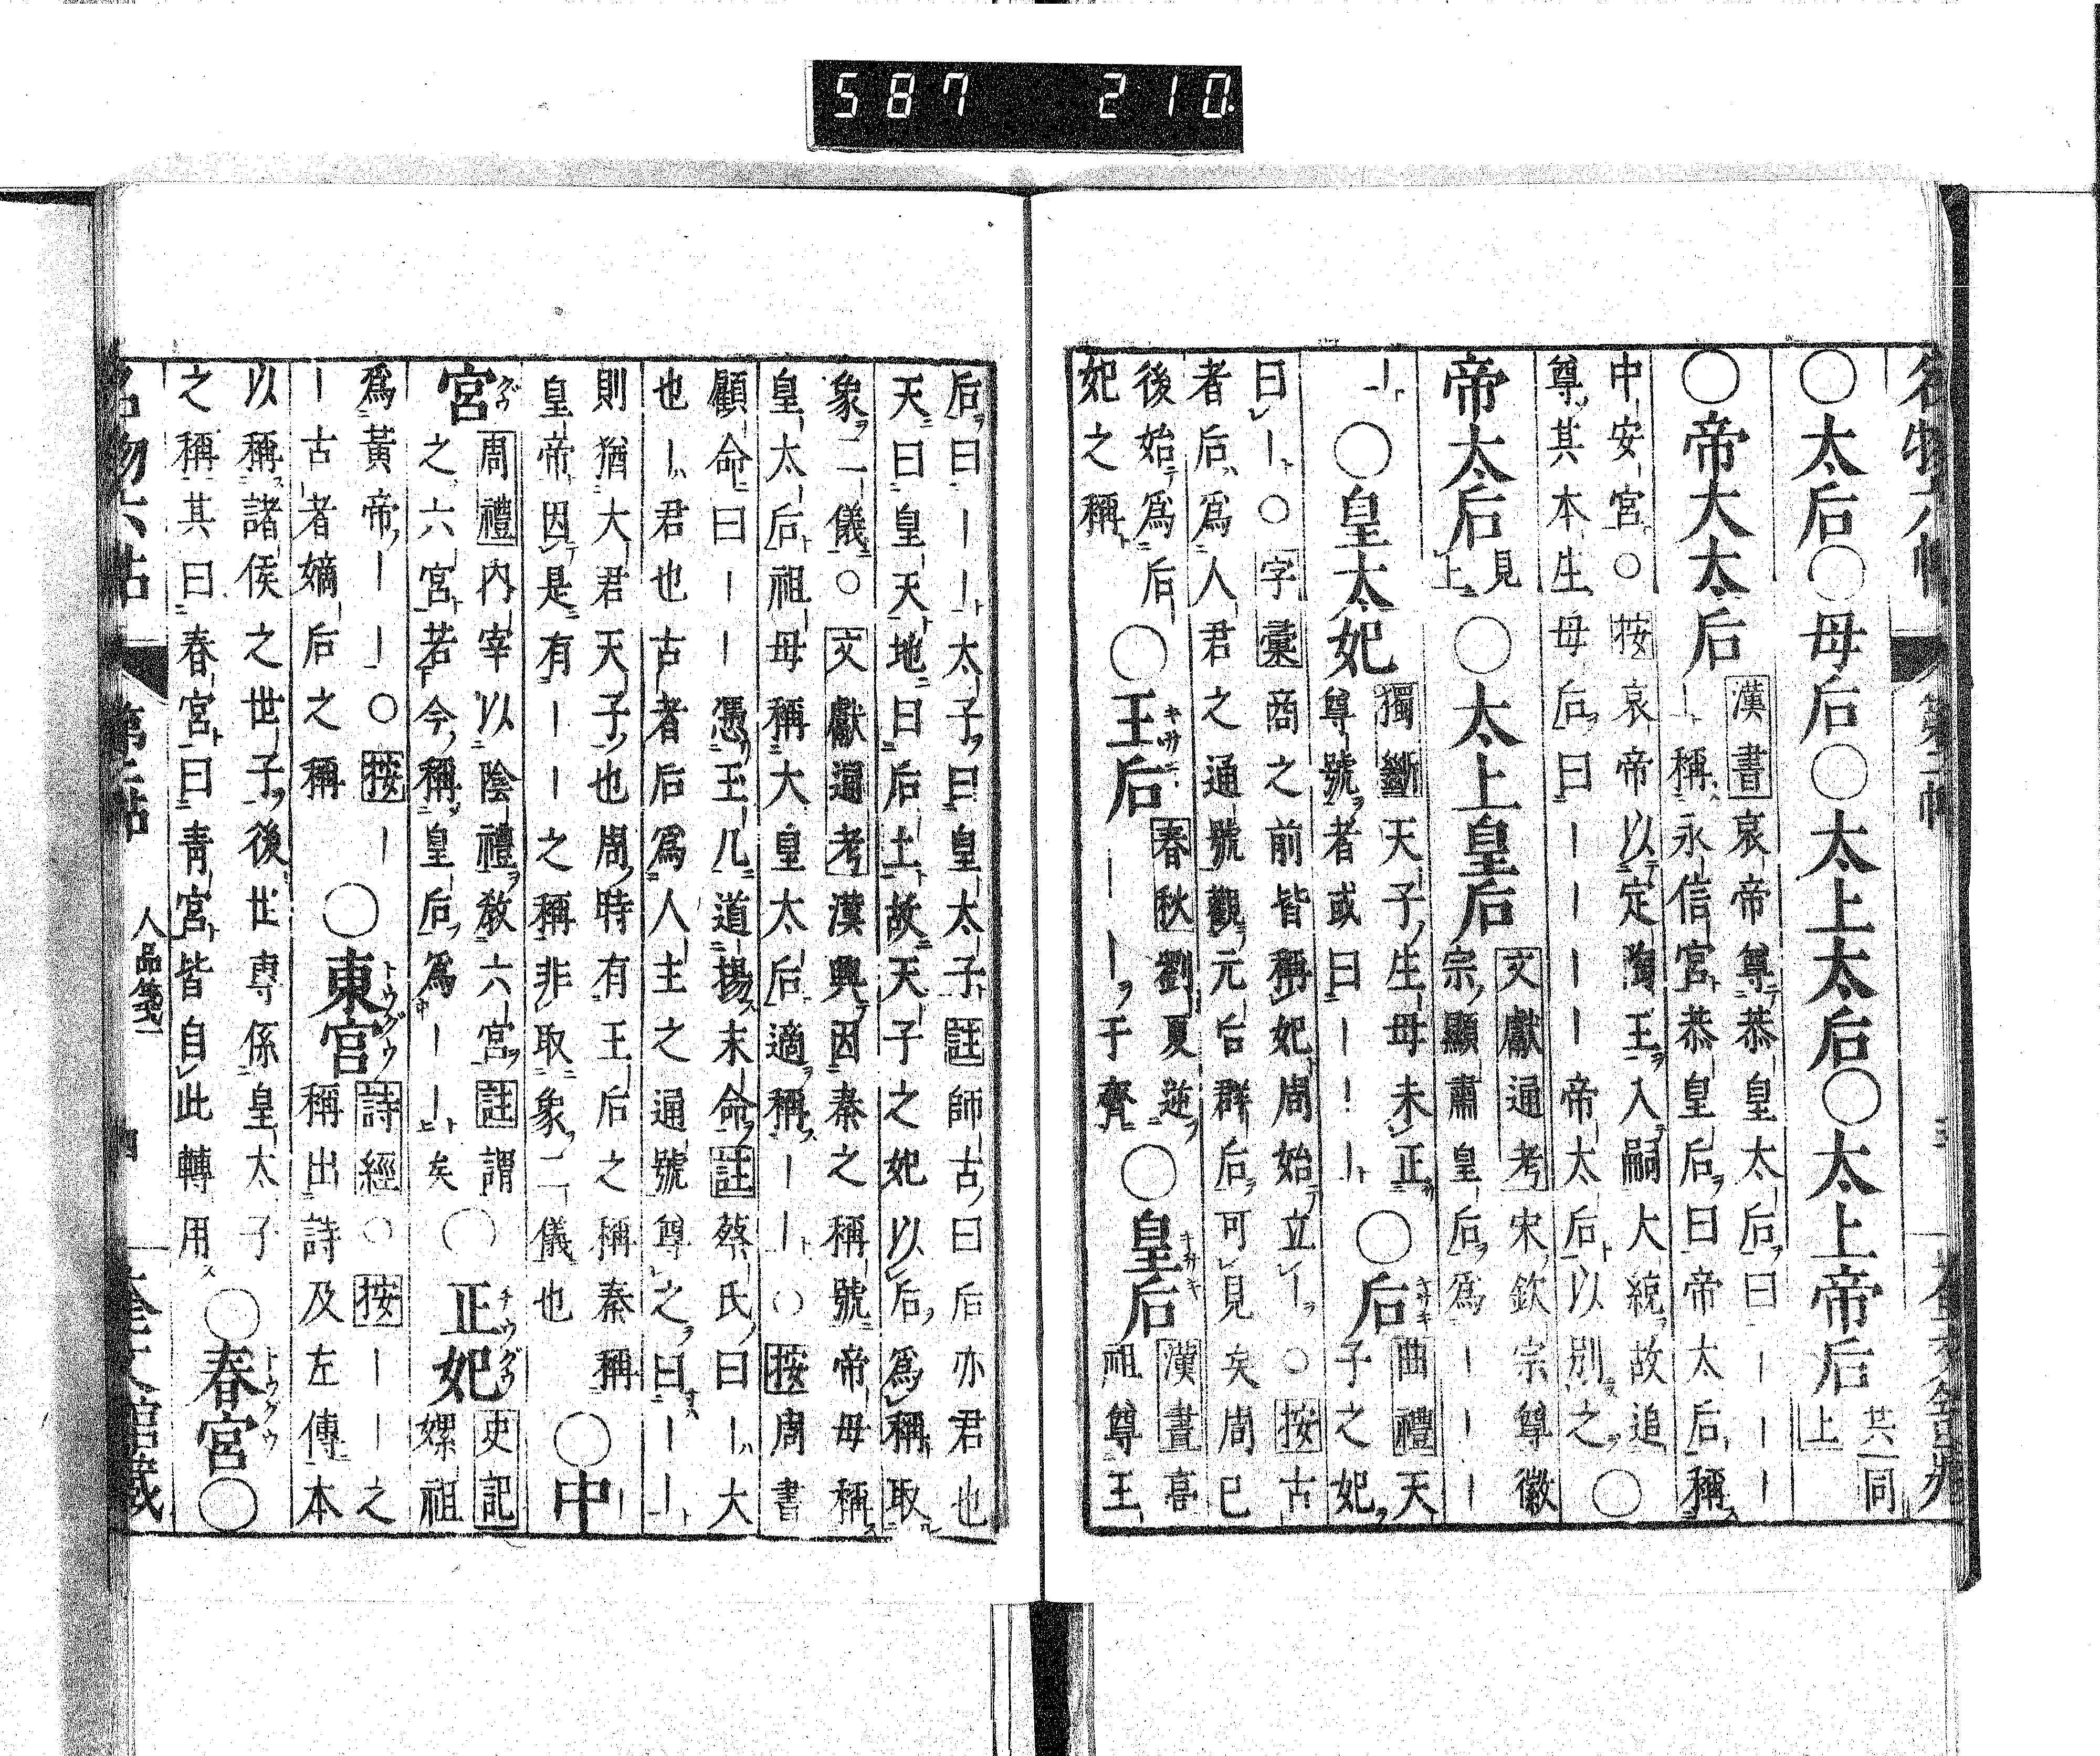 587 210
名物六帖 第二帖
○太后○母后○太上太后○太上帝后
共同
上
○帝大太后
漢書哀帝尊恭皇太后曰丨丨丨
丨稱永信宮恭皇后曰帝太后稱
中安宮○按哀帝以定陶王入嗣大統故追
尊其本生母后曰丨丨丨丨帝太后以別之
○
帝太后
見
上
○太上皇后
文獻通考宋欽宗尊徽
宗顯肅皇后爲丨丨丨
丨
○皇太妃
獨斷天子生母未正
尊號者或曰丨丨丨
○后 キサキ
曲禮天
子之妃
曰丨○字彙商之前皆稱妃周始立丨○按古
者后爲人君之通號觀元后群后可見矣周已
後始爲后
妃之稱
○王后 キサキ
春秋劉夏逆
丨丨于齊
○皇后 キサキ
漢書高
祖尊王
后曰丨丨太子曰皇太子註師古曰后亦君也
天曰皇天地曰后土故天子之妃以后爲稱取
象二儀○文獻通考漢興因秦之稱號帝母稱
皇太后祖母稱大皇太后適稱丨丨○按周書
顧命曰丨丨憑玉几道揚末命註蔡氏曰丨大
也丨君也古者后爲人主之通號尊之曰丨丨
則猶大君天子也周時有王后之稱秦稱
皇帝因是有丨丨之稱非取象二儀也
○中
宮 グウ
周禮内宰以陰禮教六宮註謂
之六宮若今稱皇后爲丨丨矣
○正妃 チウグウ
史記
嫘祖
爲黃帝丨丨○按丨
丨古者嫡后之稱
○東宮 トウグウ
詩經○按丨丨之
稱出詩及左傳本
以稱諸侯之世子後世專係皇太子
之稱其曰春宮曰青宮皆自此轉用
○春宮 トウグウ
○
名物六帖 第二帖 人品箋一 四 奎文館藏